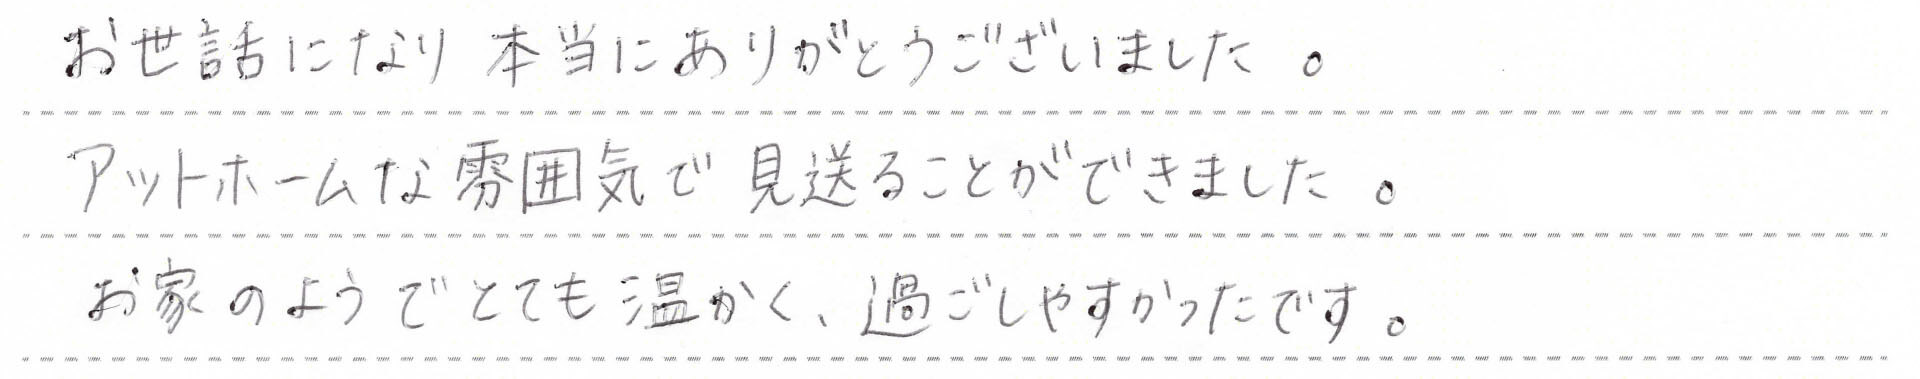 お世話になり本当にありがとうございました。
アットホームな雰囲気で見送ることができました。
お家のようでとても温かく、過ごしやすかったです。